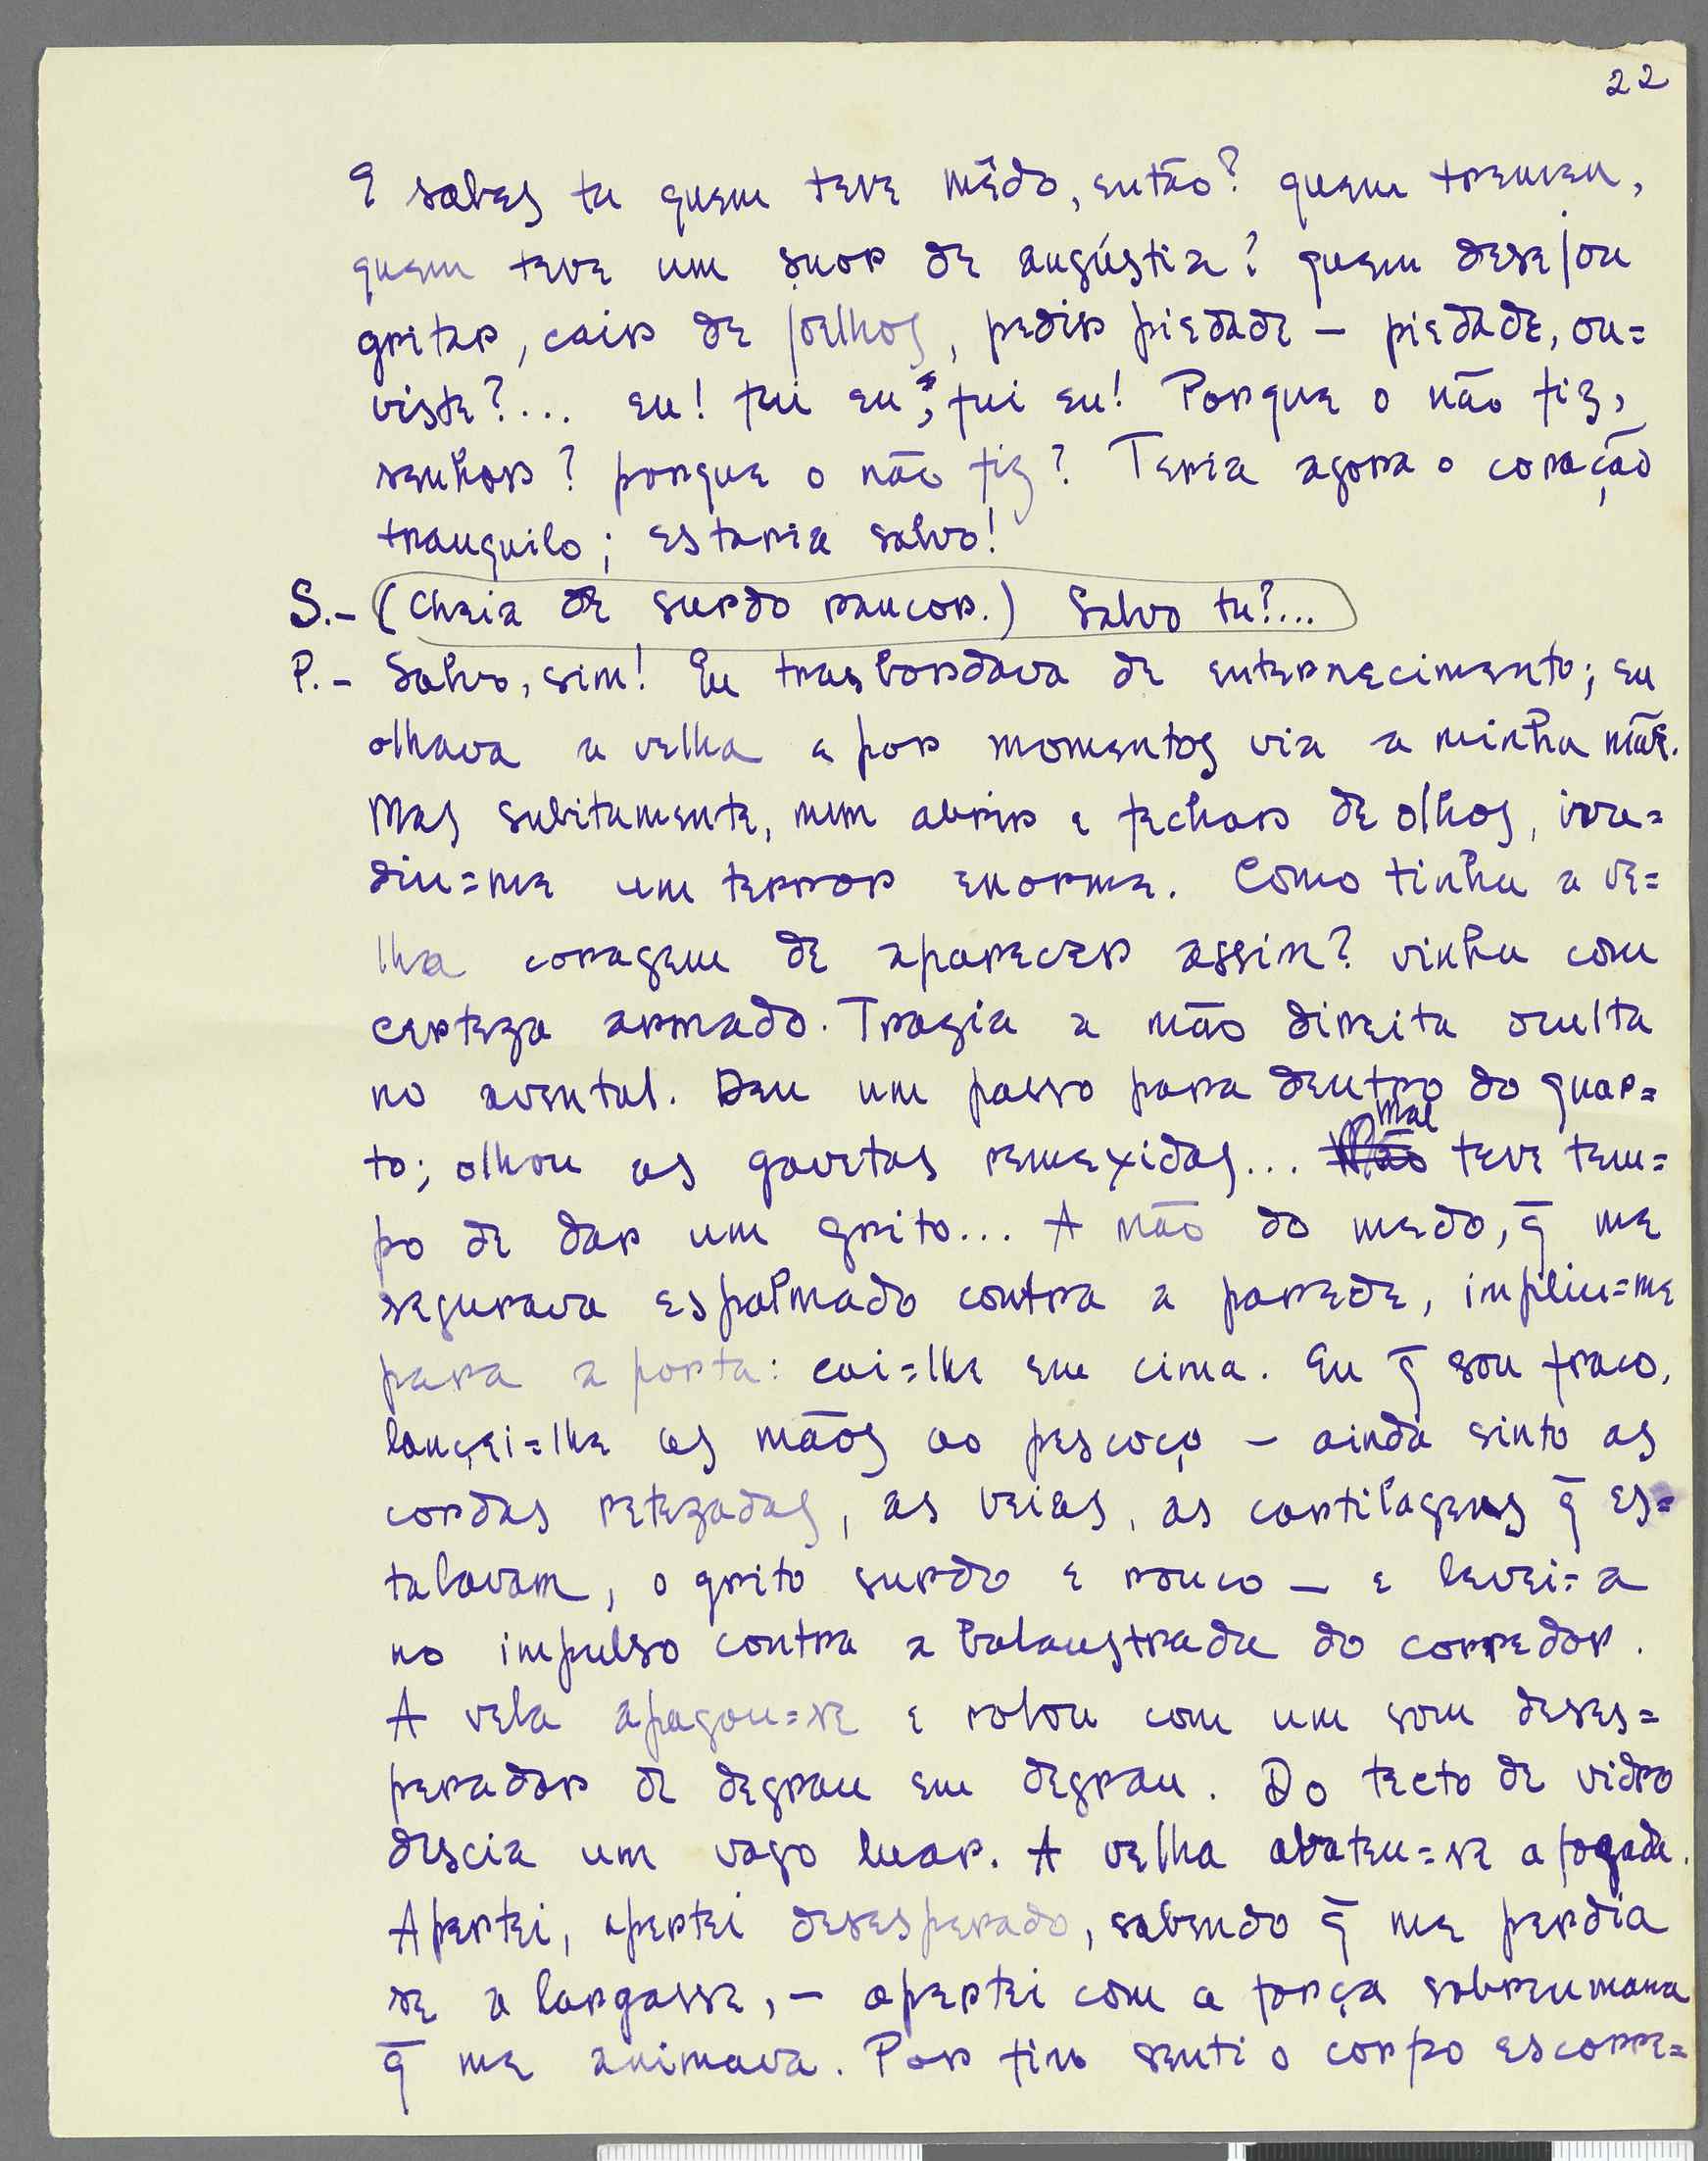 22
E sabes tu quem teve mêdo, então? quem tremeu,
quem teve um suor de angústia? quem desejou
gritar, cair de joelhos, pedir piedade — piedade, ou=
viste?... eu! fui eu, fui eu! Porque o não fiz,
senhor? porque o não fiz? Teria agora o coração
tranquilo; estaria salvo!
S.- (Cheia de surdo rancor.) Salvo tu?...
P.- Salvo, sim! Eu trasbordava de enternecimento; eu
olhava a velha e por momentos via a minha mãe.
Mas subitamente, num abrir e fechar de olhos, inva=
diu=me um terror enorme. Como tinha a ve=
lha coragem de aparecer assim? vinha com
certeza armada. Trazia a mão direita oculta
no avental. Deu um passo para dentro do quar=
to; olhou as gavetas remexidas... Mal teve tem=
po de dar um grito... A mão do medo, q̄ me
segurava espalmado contra a parede, impeliu=me
para a porta: caí=lhe em cima. Eu q̄ sou fraco,
lancei=lhe as mãos ao pescoço — ainda sinto as
cordas retezadas, as veias, as cartilagens q̄ es=
talavam, o grito surdo e rouco — e levei=a
no impulso contra a balaustrada do corredor.
A vela apagou=se e rolou com um som deses=
perador de degrau em degrau. Do tecto de vidro
descia um vago luar. A velha abateu=se afogada.
Apertei, apertei desesperado, sabendo q̄ me perdia
se a largasse, — apertei com a força sobreumana
q̄ me animava. Por fim senti o corpo escorre=